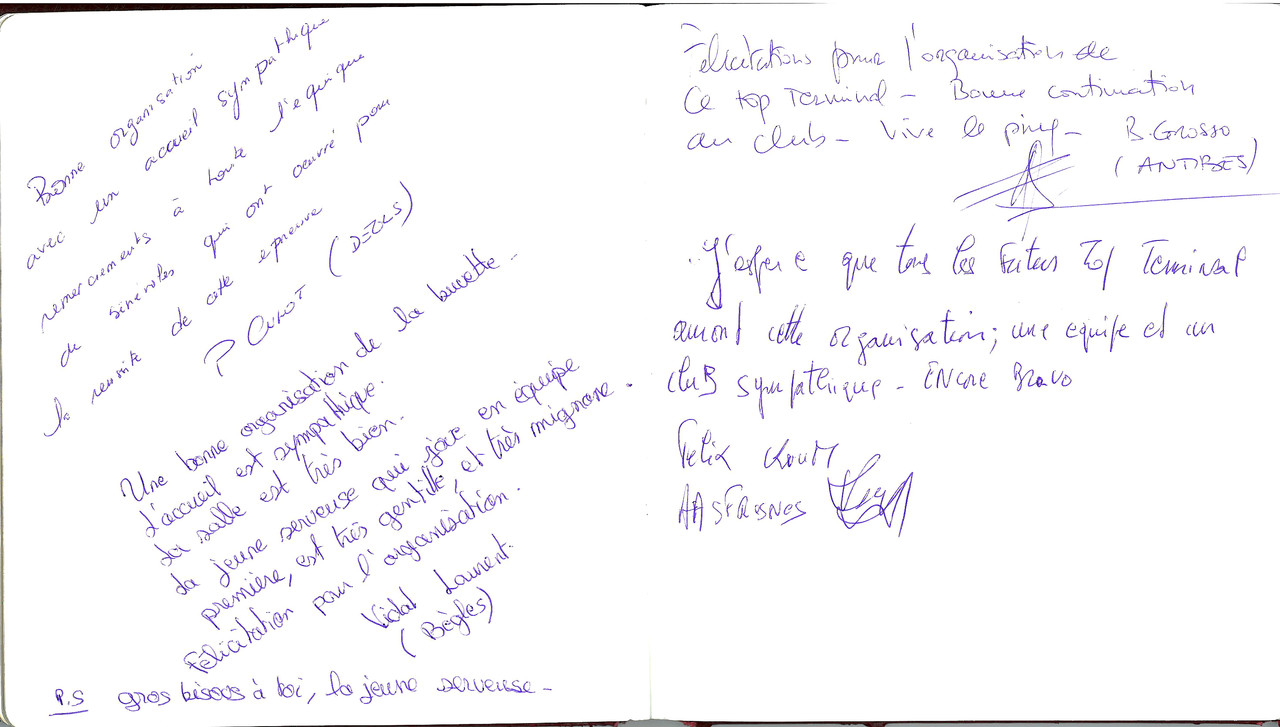 Bonne organisation
avec un accueil sympathique
remerciements à toute l'equique
de bénévoles qui ont oeuvré pour
la reussite de cette epreuve
P (DEOLS)
Une bonne organisation de la buvette -
L'accueil est sympathique.
La salle est très bien.
La jeune serveuse qui joue en équipe
première, est très gentille, et très mignone.
Félicitation pour l'organisation.
Vidal Laurent.
(Bègles)
P.S gros bisous à toi, la jeune serveuse -
Félicitations pour l'organisation de
ce top Terminal - Bonne continuation
au club - Vive le ping - B. GROSSO
(ANTIBES)
J'espere que tous les futurs Top Terminal
auront cette organisation; une equipe et un
cluB sympathique - ENcore Bravo
Felix
AAS FRESNES